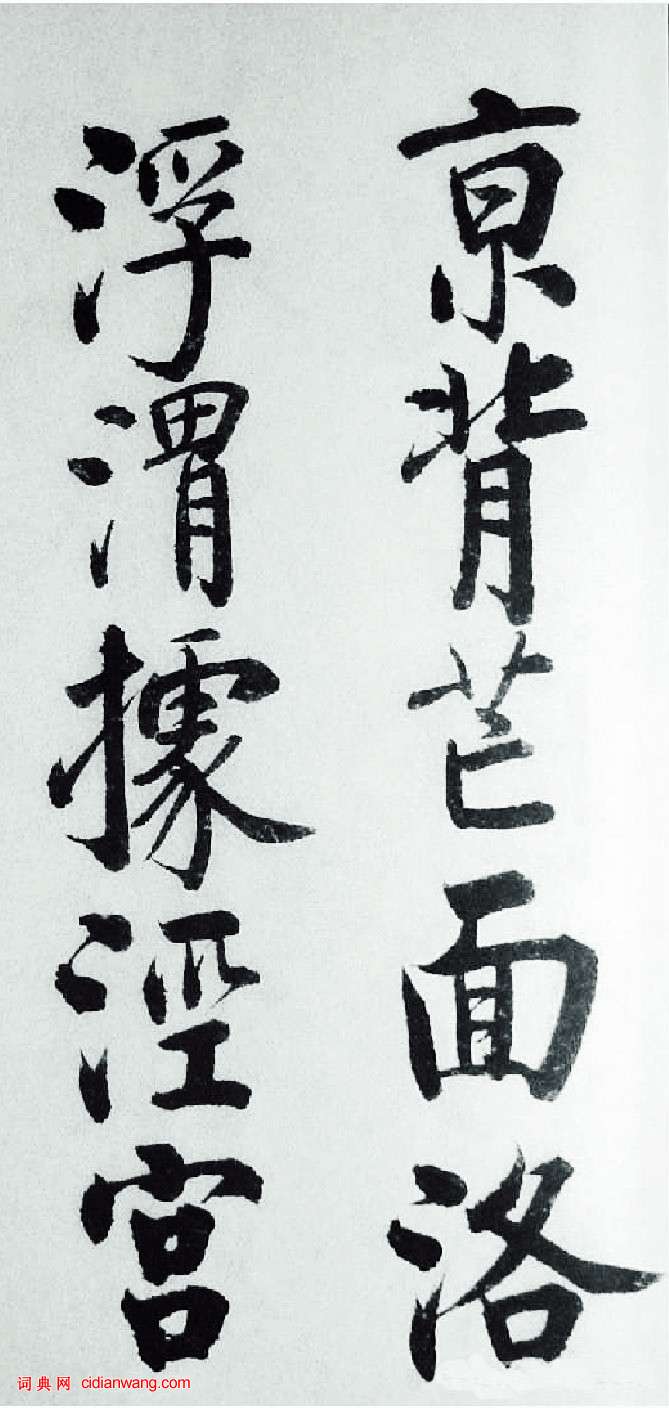 京背芒面洛
浮渭據涇宫
词典网 cidianwang.com